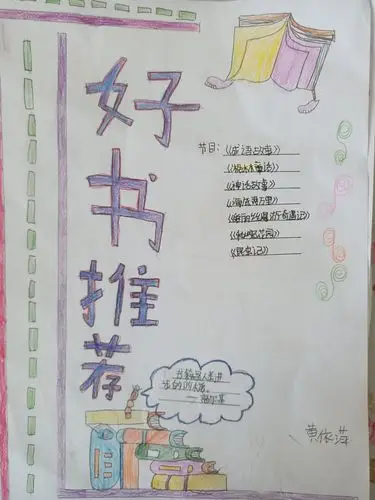 好书推荐
节目：《成语故事》
《格林童话》
《神话故事》
《海底两万里》
《爱丽丝漫游奇遇记》
《秘密花园》
《昆虫记》
书籍是人类进
步的阶梯。
——高尔基
黄依萍